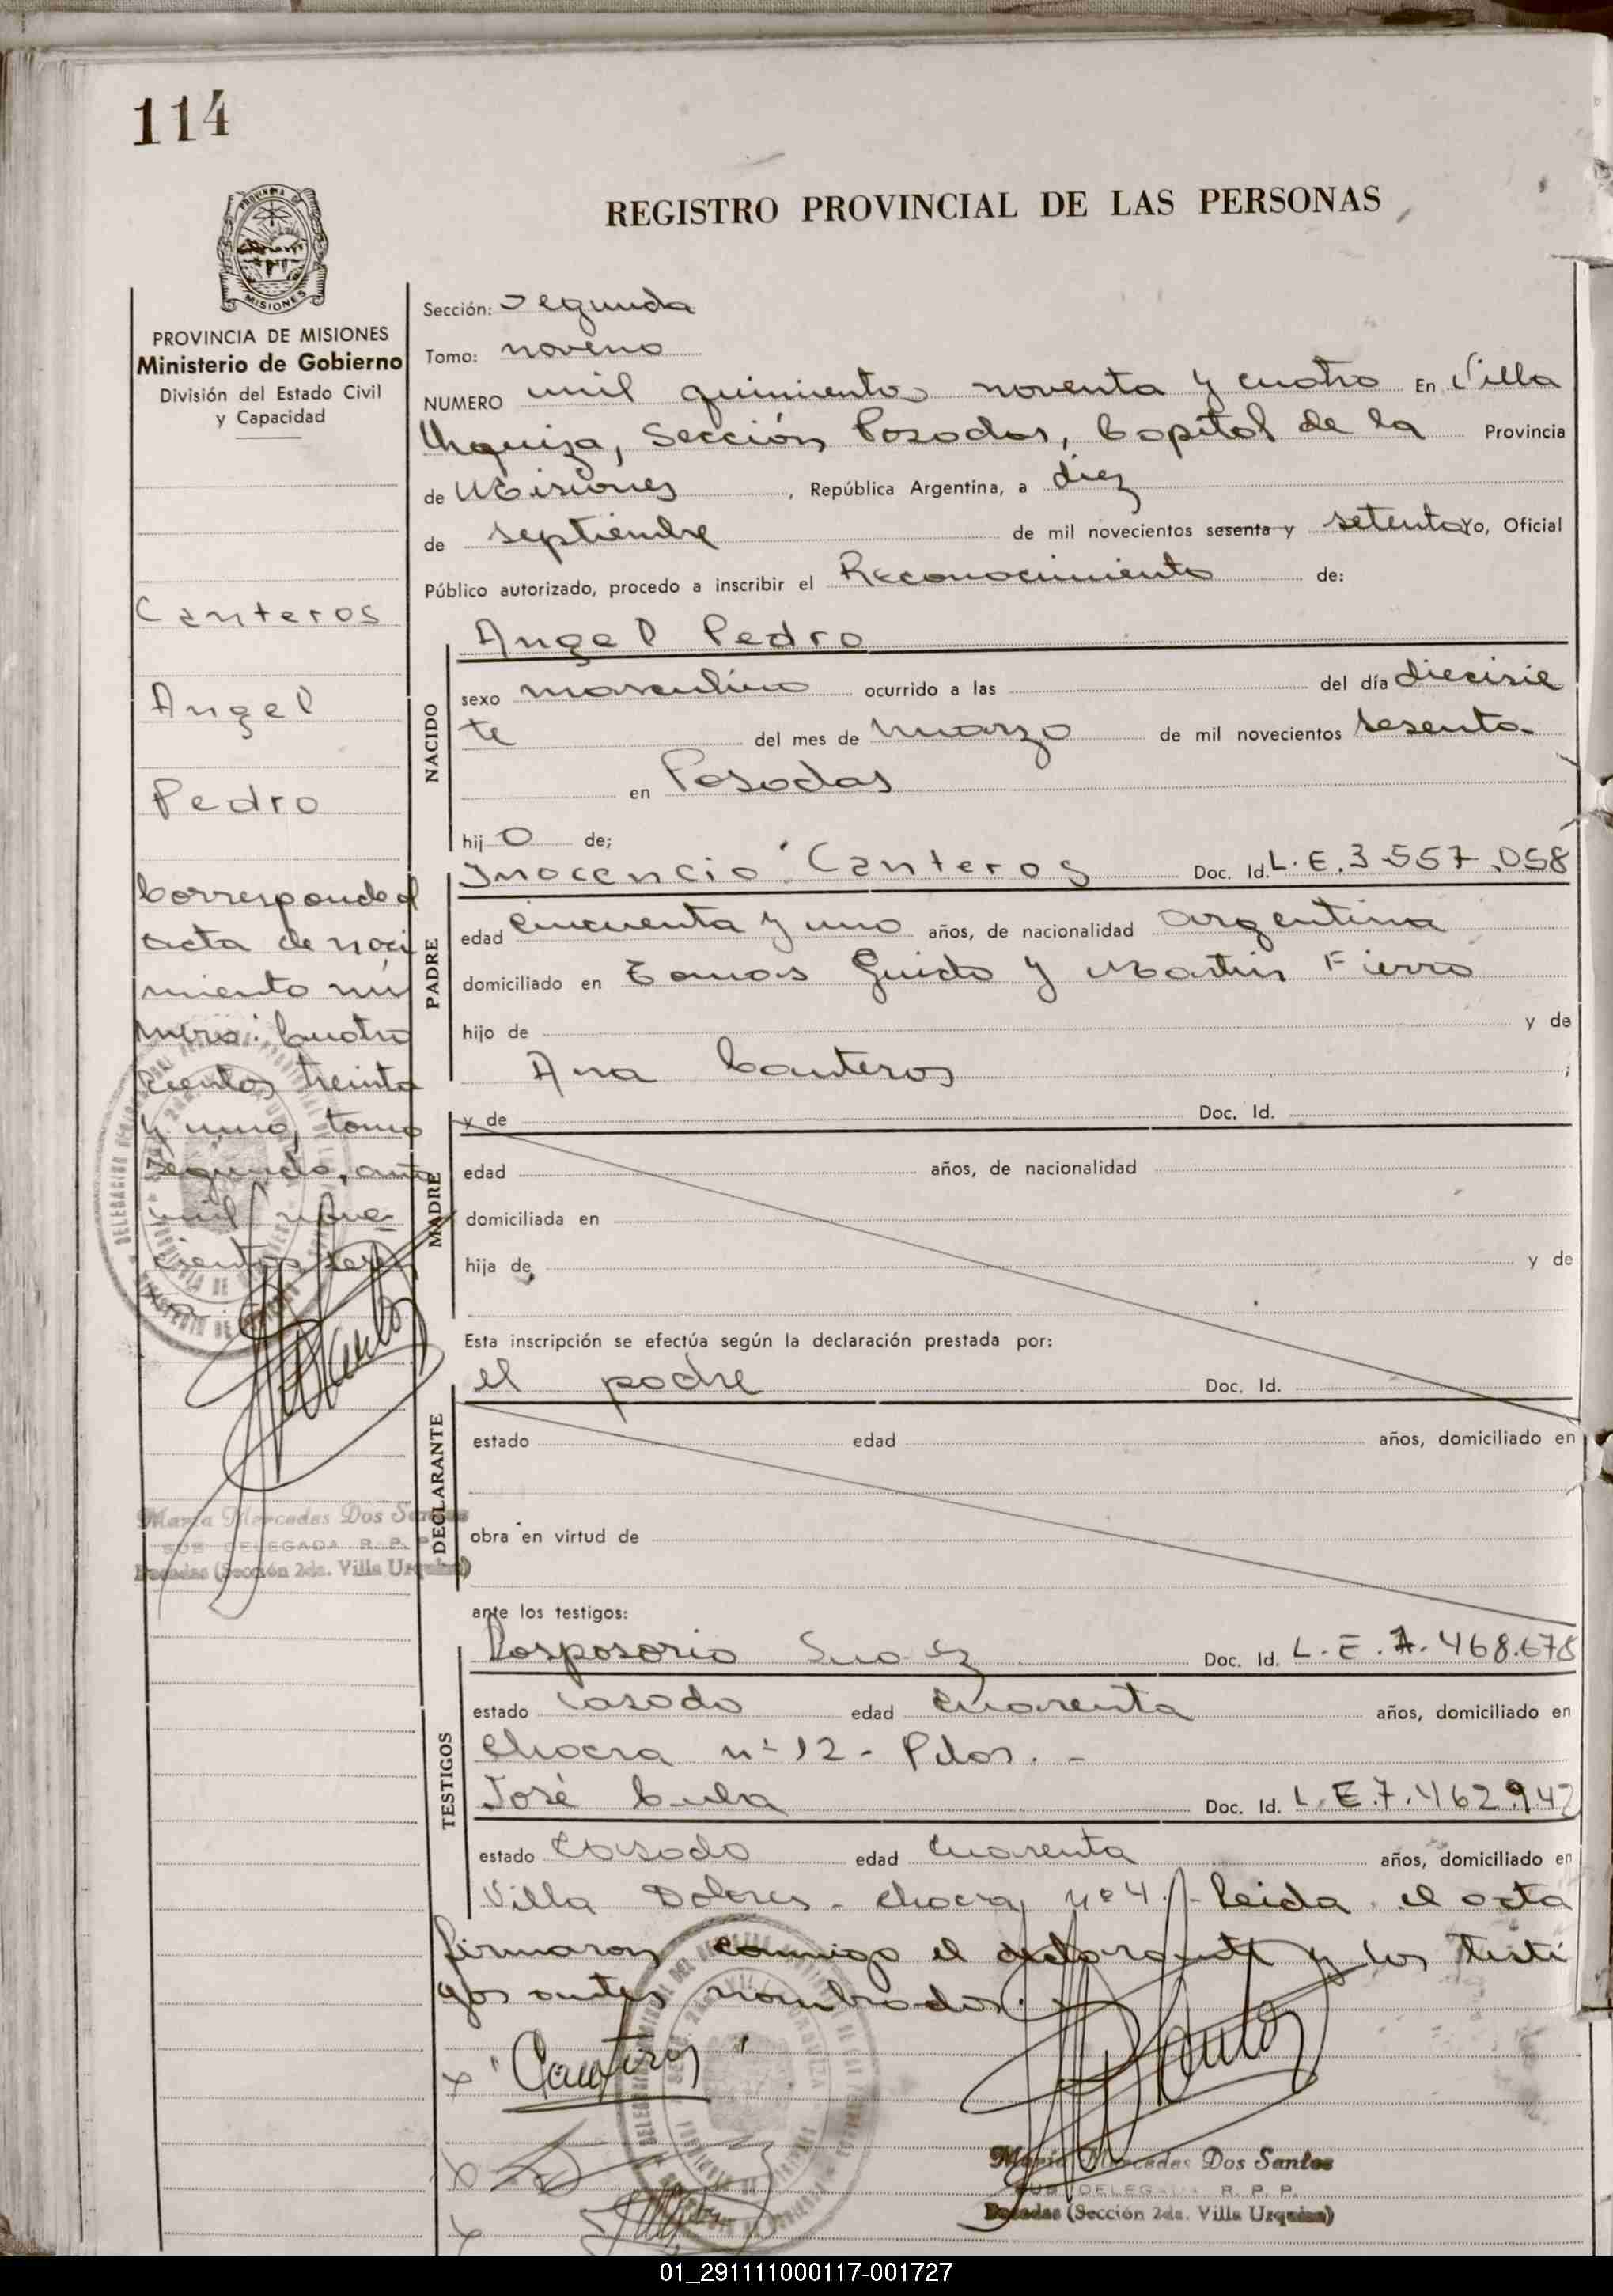 114
REGISTRO PROVINCIAL DE LAS PERSONAS
PROVINCIA
MISIONES
PROVINCIA DE MISIONES
Ministerio de Gobierno
División del Estado Civil
y Capacidad
Canteros
Angel
Pedro
Corresponde al
acta de naci
miento nú
mero: Cuatro
cientos treinta
y uno, tomo
segundo, año
mil nove
cientos
María Mercedes Dos Santos
SUB DELEGADA R. P. P.
Posadas (Sección 2da. Villa Urquiza)
Sección: Segunda
Tomo: noveno
NUMERO mil quinientos noventa y cuatro En Villa
Urquiza, Sección Posadas, Capital de la Provincia
de Misiones, República Argentina, a diez
de septiembre de mil novecientos sesenta y setenta Yo, Oficial
Público autorizado, procedo a inscribir el Reconocimiento de:
Angel Pedro
NACIDO
sexo masculino ocurrido a las del día diecisie
te del mes de marzo de mil novecientos sesenta
en Posadas
hij o de;
PADRE
Inocencio Canteros Doc. Id. L. E. 3.557.058
edad cincuenta y uno años, de nacionalidad argentina
domiciliado en Tomas Guido y Martin Fierro
hijo de y de
Ana Canteros ;
MADRE
y de Doc. Id.
edad años, de nacionalidad
domiciliada en
hija de y de
Esta inscripción se efectúa según la declaración prestada por:
el padre Doc. Id.
DECLARANTE
estado edad años, domiciliado en
obra en virtud de
ante los testigos:
TESTIGOS
Doc. Id. L. E. 7.468.678
estado casado edad cuarenta años, domiciliado en
chacra nº 12 - Pdas. -
José Doc. Id. L. E. 7.462.942
estado casado edad cuarenta años, domiciliado en
Villa Dolores - chacra nº 4. - Leida el acta
firmaron conmigo el declarante y los testi
gos antes nombrados.
Canteros
María Mercedes Dos Santos
SUB DELEGADA R. P. P.
Posadas (Sección 2da. Villa Urquiza)
01_291111000117-001727